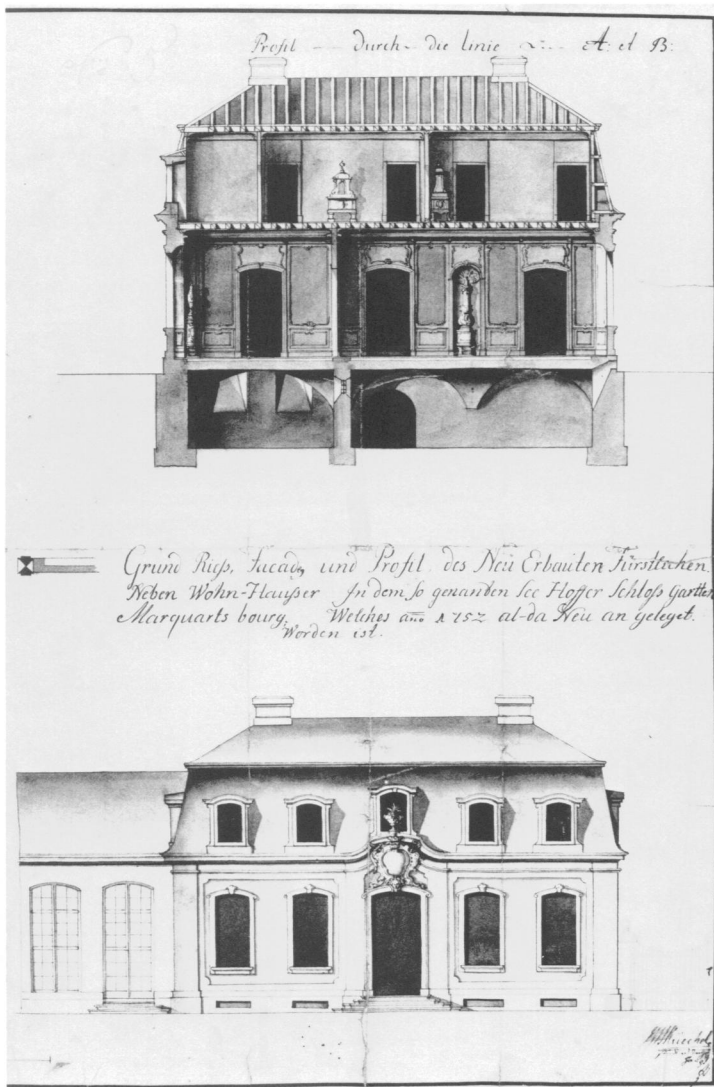 Profil Durch die linie A: et B:
Grund Riess, Facade und Profil des Neü Erbauten Fürstlichen
Neben Wohn-Haußer In dem so genanden See Hoffer Schloß Gartten
Marquarts bourg, Welches año 1752 al-da Neu an geleget.
Worden ist.